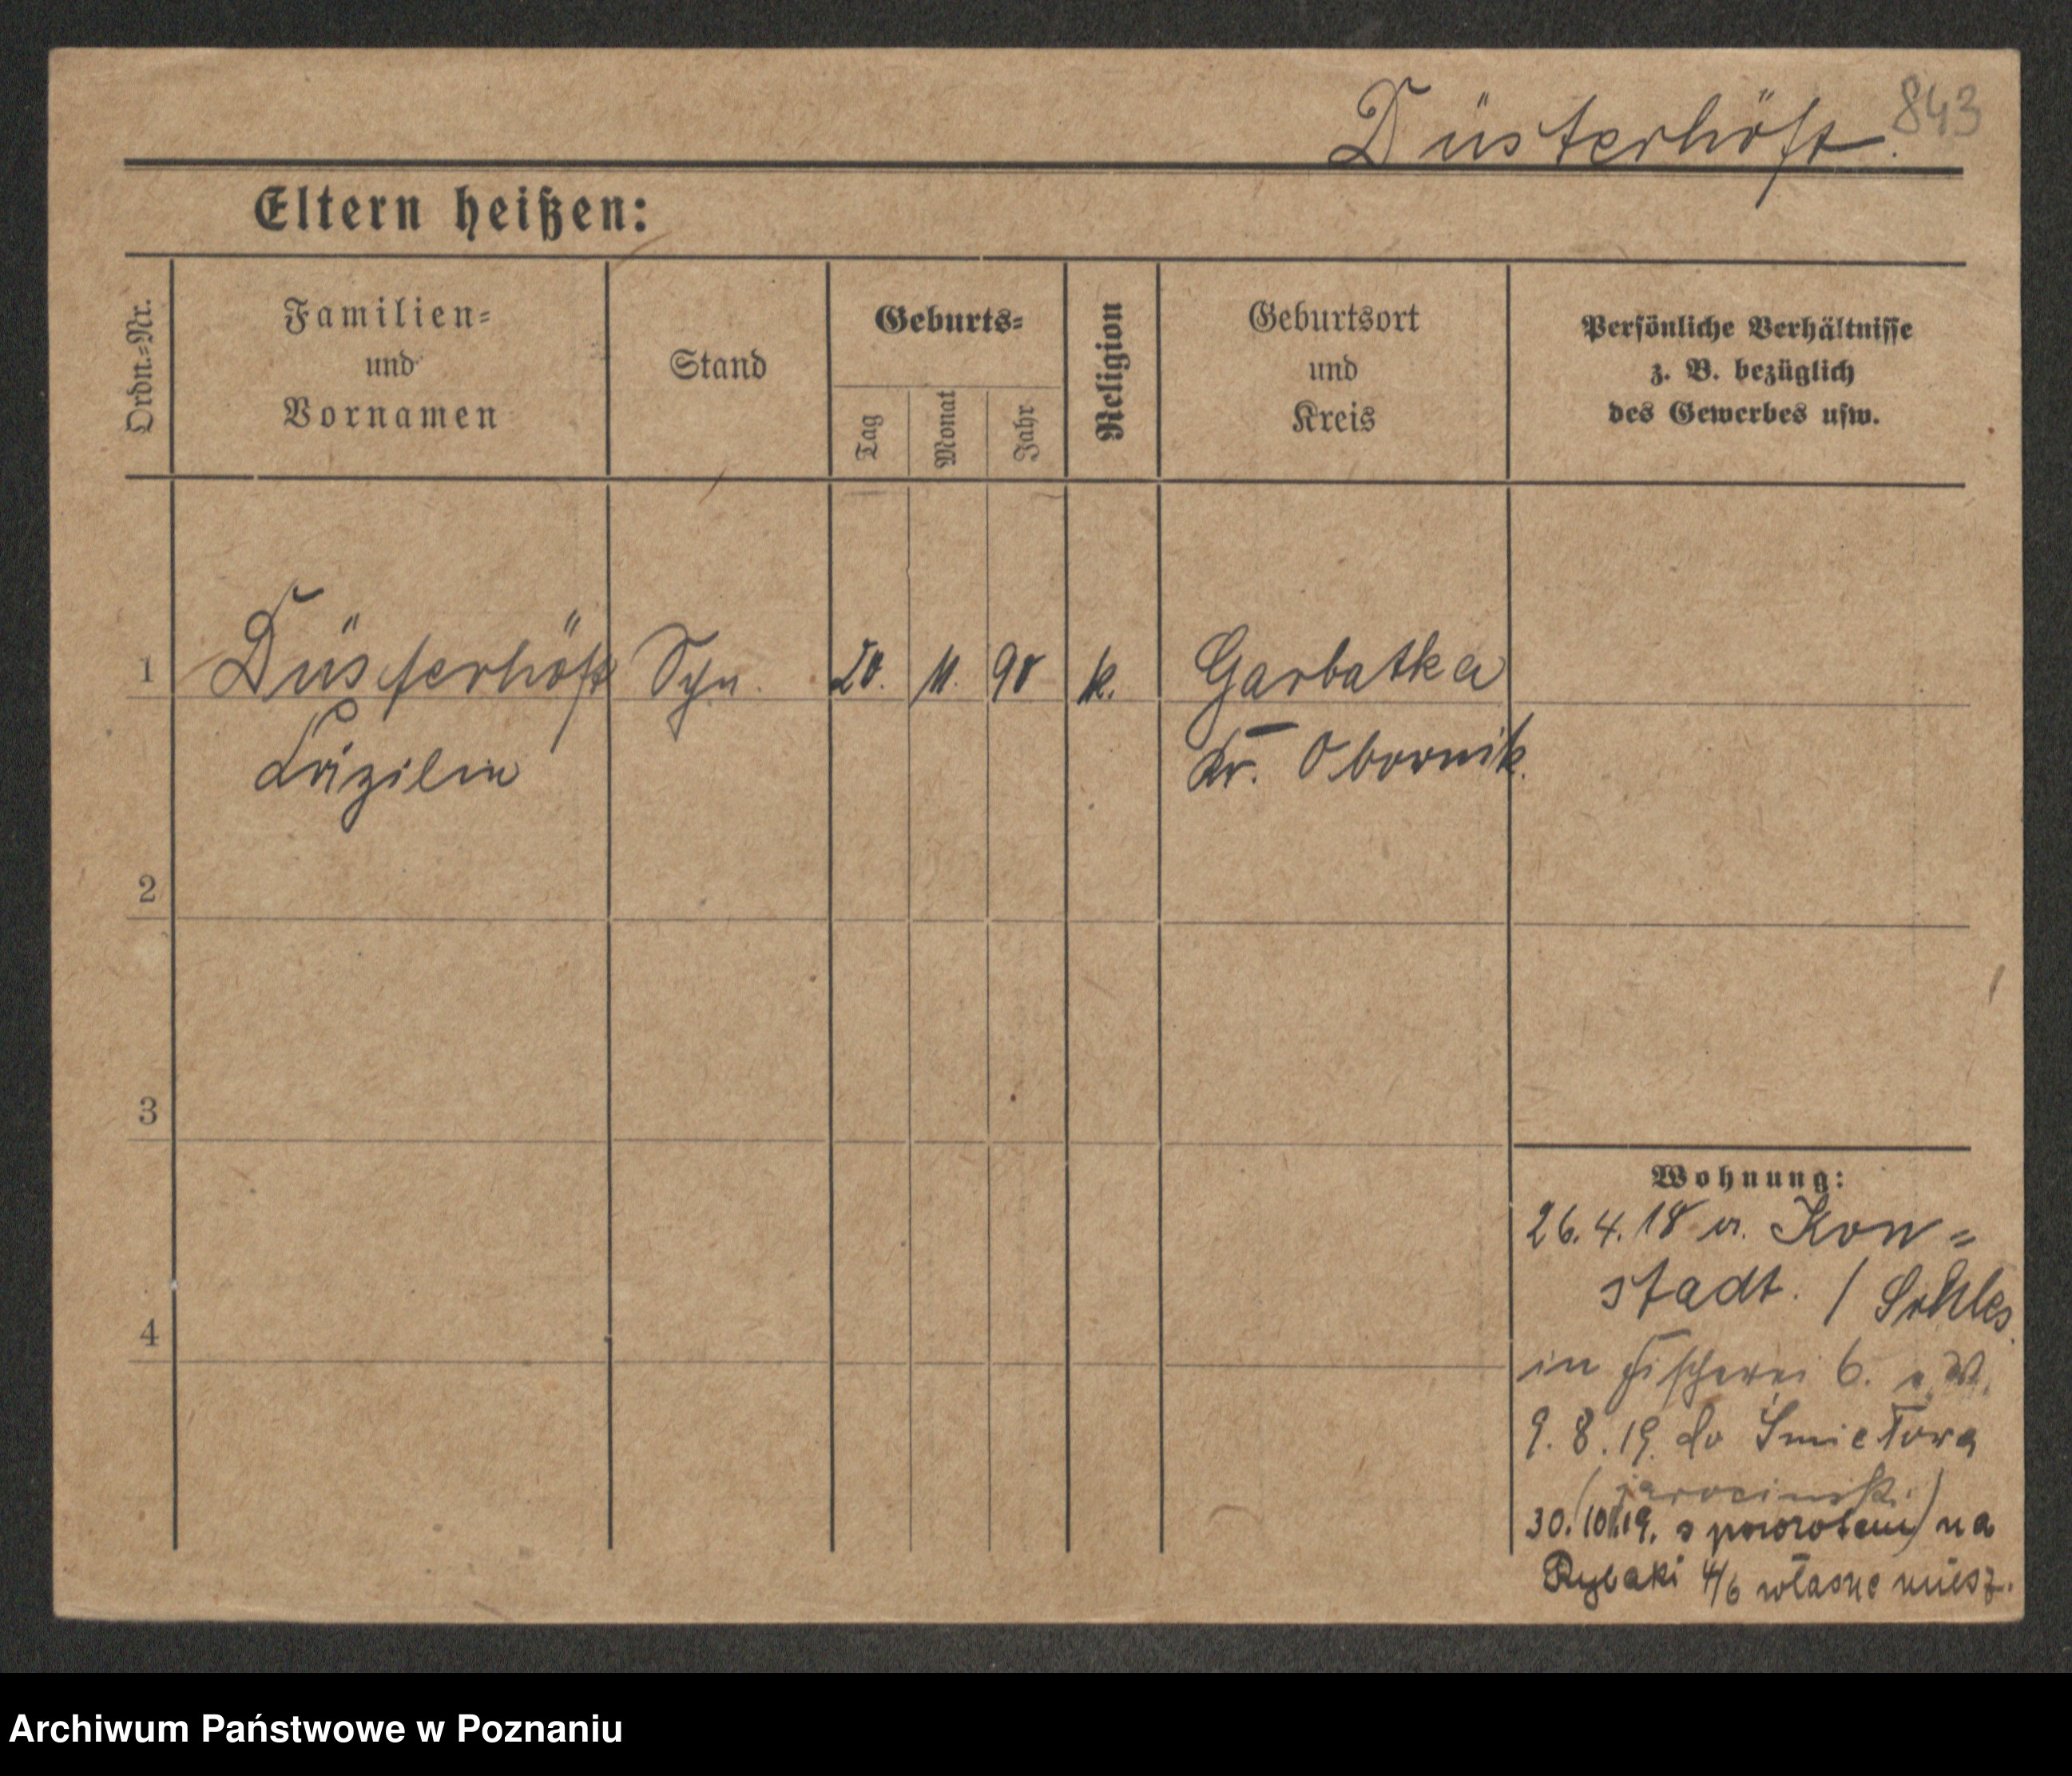 Düsterhöft. 843
Eltern heißen:
Ordn.=Nr.
Familien=
und
Vornamen
Stand
Geburts=
Tag
Monat
Jahr
Religion
Geburtsort
und
Kreis
Persönliche Verhältnisse
z. B. bezüglich
des Gewerbes usw.
1 Düsterhöft 11. k. Garbatka
Zäzilie Kr. Obornik.
2
3
4
Wohnung:
26.4.18 a. Kon=
stadt. / Schles.
in Fischerei 6.
9.8.19. do
(jarocinsk.)
30./10.19. z powrotem) na
Rybaki 4/6 własne miesz.
Archiwum Państwowe w Poznaniu